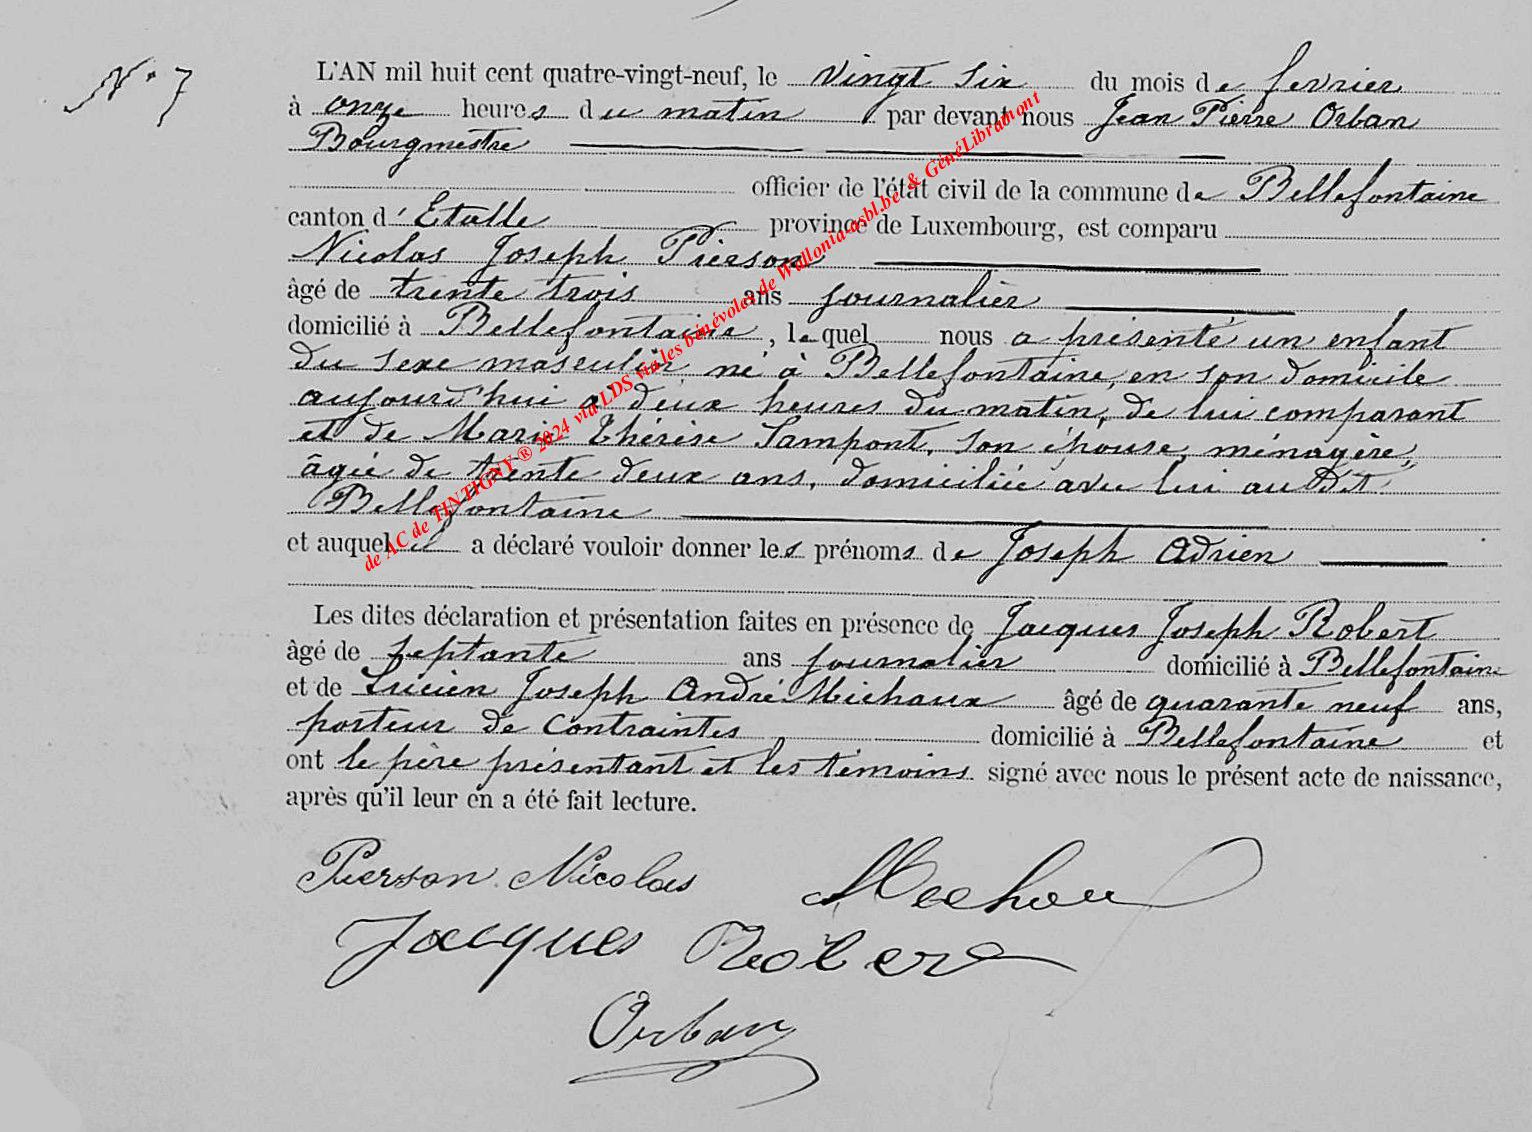 N° 7
L'AN mil huit cent quatre-vingt-neuf, le vingt six du mois de fevrier
à onze heures du matin par devant nous Jean Pierre Orban
Bourgmestre
officier de l'état civil de la commune de Bellefontaine
canton d'Etalle province de Luxembourg, est comparu
Nicolas Joseph Pierson
âgé de trente trois ans journalier
domicilié à Bellefontaine, lequel nous a présenté un enfant
du sexe masculin né à Bellefontaine, en son domicile
aujourd'hui à deux heures du matin, de lui comparant
et de Marie Thérèse Lampont, son épouse, ménagère,
âgée de trente deux ans, domiciliée avec lui au dit
Bellefontaine
et auquel il a déclaré vouloir donner les prénoms de Joseph Adrien
Les dites déclaration et présentation faites en présence de Jacques Joseph Robert
âgé de septante ans journalier domicilié à Bellefontaine
et de Lucien Joseph André Michaux âgé de quarante neuf ans,
porteur de Contraintes domicilié à Bellefontaine et
ont le père présentant et les témoins signé avec nous le présent acte de naissance,
après qu'il leur en a été fait lecture.
Pierson Nicolas
Jacques Robert
Orban
de AC de TINTIGNY ® 2024 via LDS via les bénévoles de Wallonia-asbl.be & GénéLibramont